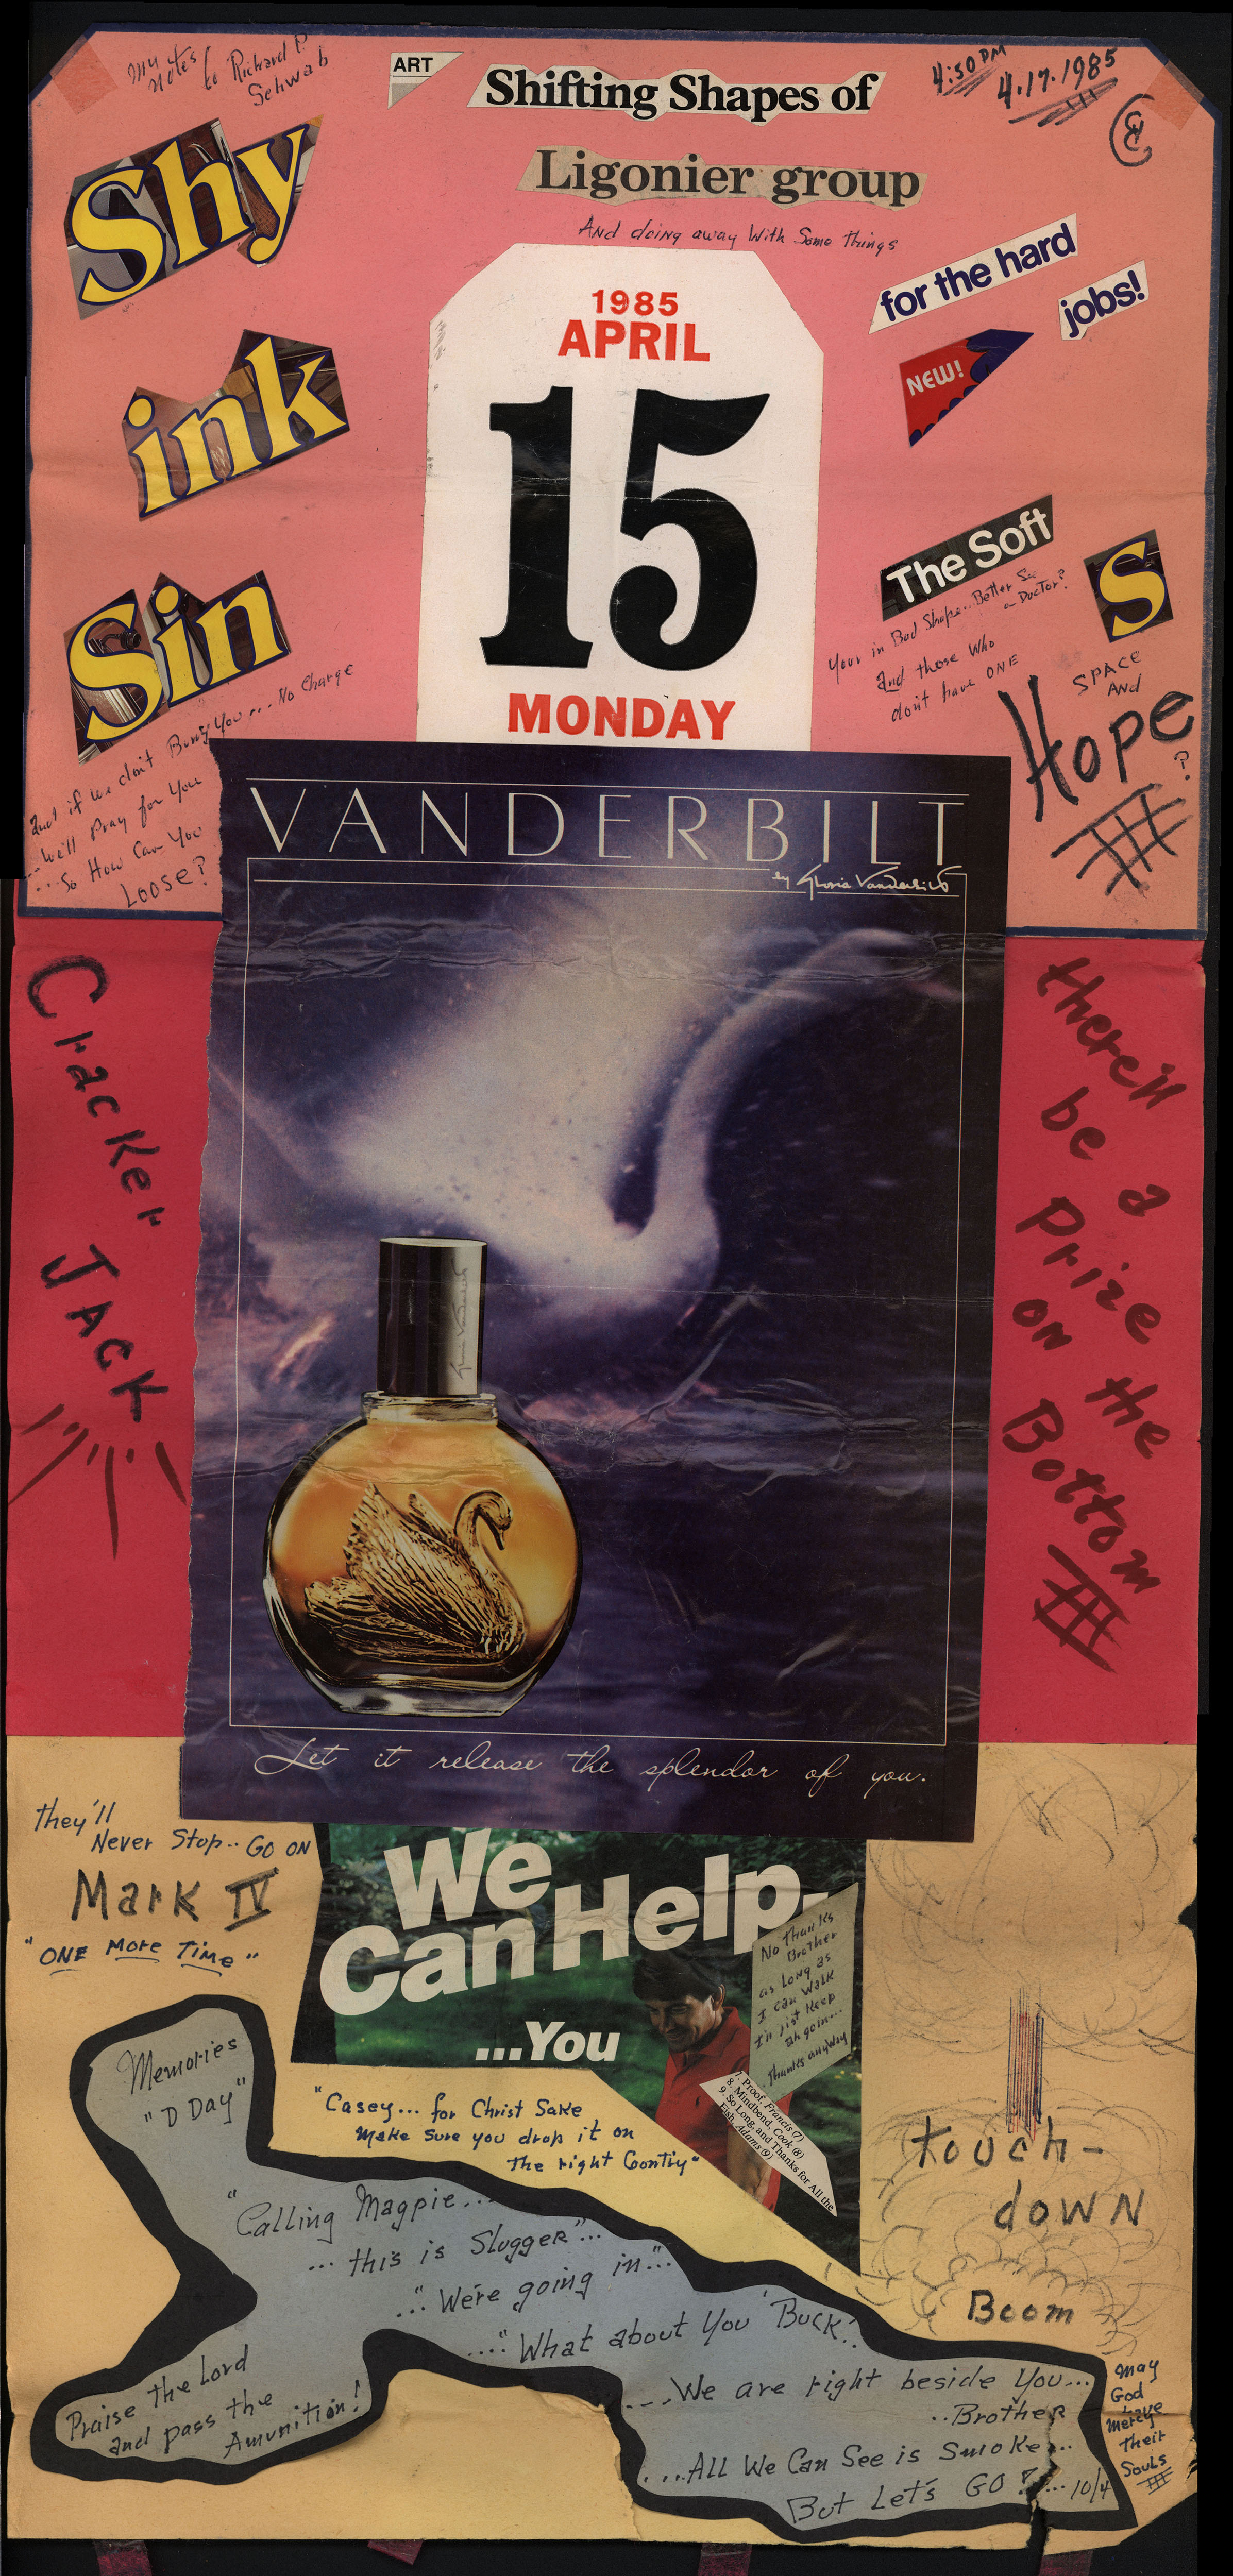 My
Notes
to Richard P.
Schwab
ART
Shifting Shapes of
4:30 PM
4.17.1985
Ligonier group
And doing away With Some things
Shy
ink
Sin
1985
APRIL
15
MONDAY
for the hard
jobs!
NEW!
The Soft
S
Your in Bad Shape.. Better See
a Doctor?
and those Who
don't have ONE
SPACE
AND
Hope
?
and if we don't Bury You... No Charge
...We'll Pray for You
...So How Can You
Loose?
VANDERBILT
by Gloria Vanderbilt
Cracker
JACK
there'll
be a
Prize
on the
Bottom
Gloria Vanderbilt
Let it release the splendor of you.
they'll
Never Stop.. GO ON
Mark IV
"ONE More Time"
We
Can Help.
...You
No Thanks
Brother
as Long as
I can Walk
I'll jist Keep
ah goin...
Thanks anyway
7. Proof, Francis (7)
8. Mindbend, Cook (8)
9. So Long, and Thanks for All the
Fish, Adams (9)
"Casey... for Christ Sake
Make Sure you drop it on
the right Country"
Memories
"D Day"
touch-
down
Boom
"Calling Magpie...
... this is Slugger"...
..."We're going in"...
...."What about You 'Buck'..
....We are right beside You...
..Brother
....All We Can See is Smoke...
But Let's GO!... 10/4
Praise the Lord
and pass the
Amunition!
May
God
have
Mercy
Their
Souls